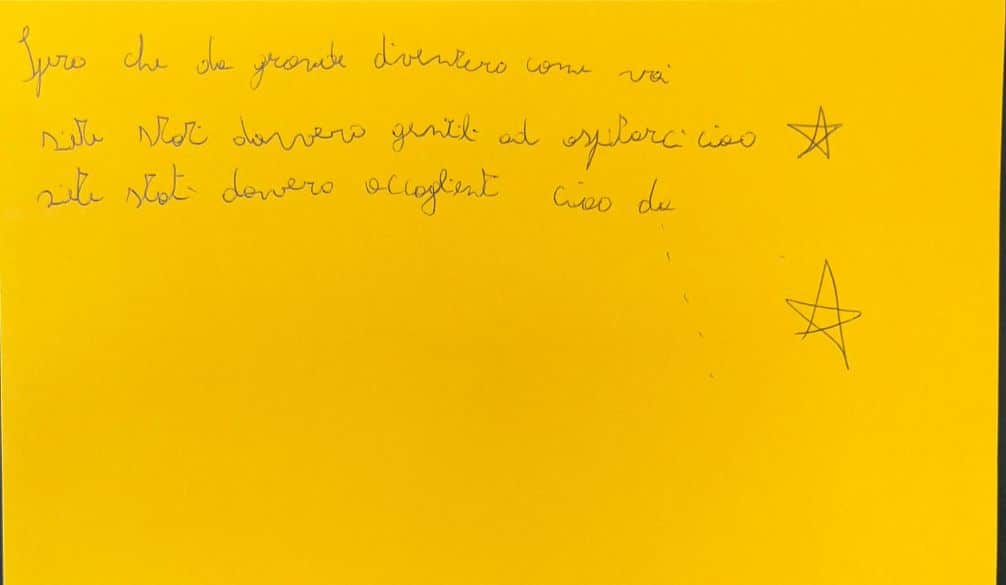 Spero che da grande diventero come voi
siete stati davvero gentili ad ospitarci ciao
siete stati davvero accoglienti ciao da